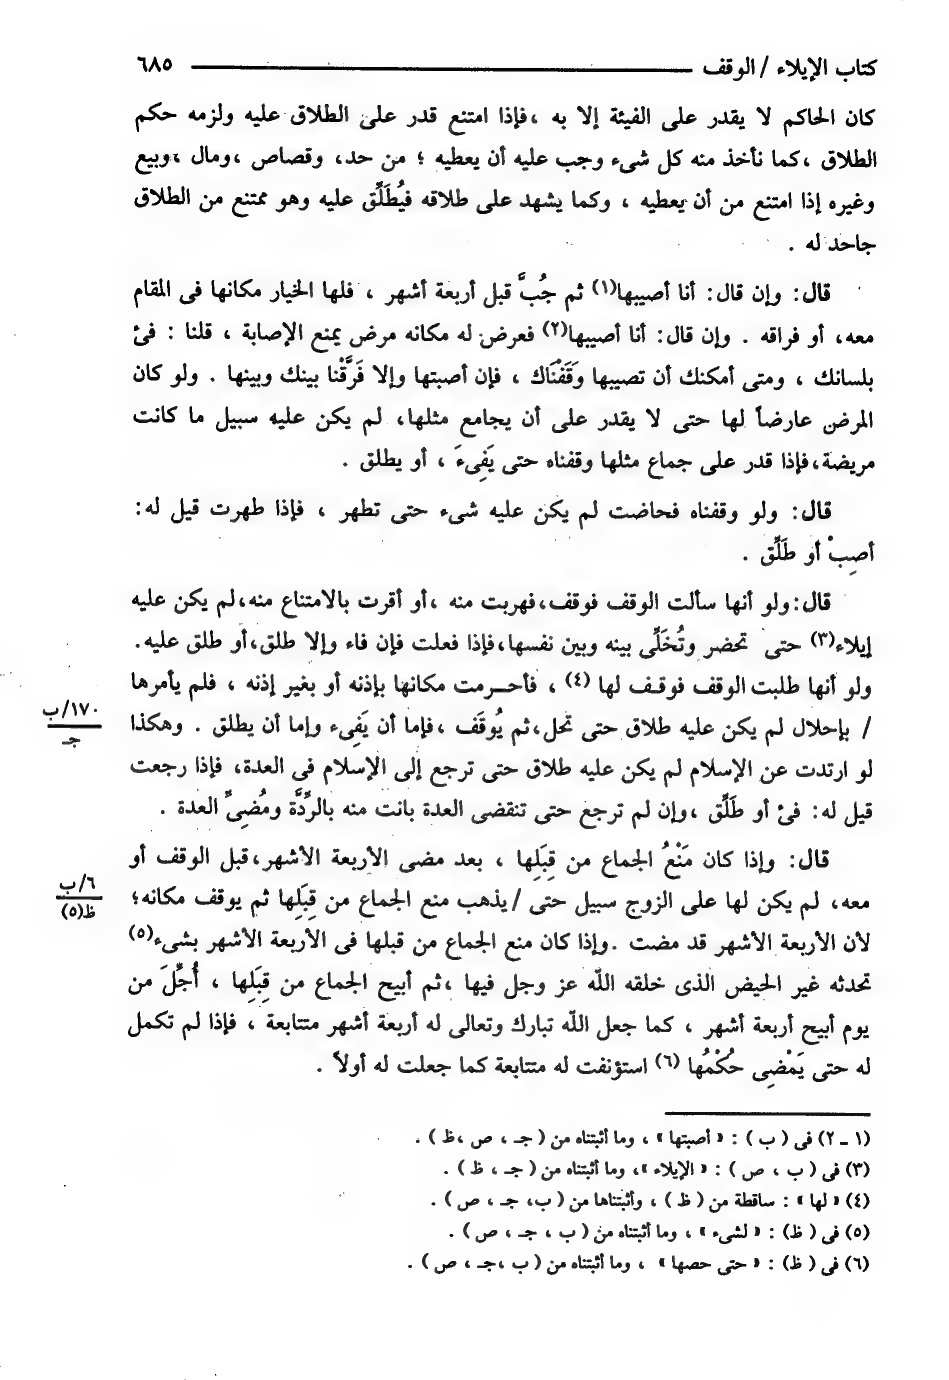 كتاب الإيلاء / الوقف ــــــــــ ٦٨٥
كان الحاكم لا يقدر على الفيئة إلا به ، فإذا امتنع قدر على الطلاق عليه ولزمه حكم
الطلاق ، كما نأخذ منه كل شىء وجب عليه أن يعطيه ؛ من حد، وقصاص ، ومال ، وبيع
وغيره إذا امتنع من أن يعطيه ، وكما يشهد على طلاقه فيُطَلَّق عليه وهو ممتنع من الطلاق
جاحد له .
قال: وإن قال: أنا أصيبها(١) ثم جُبَّ قبل أربعة أشهر ، فلها الخيار مكانها فى المقام
معه، أو فراقه . وإن قال: أنا أصيبها(٢) فعرض له مكانه مرض يمنع الإصابة ، قلنا : فئ
بلسانك ، ومتى أمكنك أن تصيبها وَقَفْنَاك ، فإن أصبتها وإلا فَرَّقْنا بينك وبينها . ولو كان
المرض عارضاً لها حتى لا يقدر على أن يجامع مثلها، لم يكن عليه سبيل ما كانت
مريضة، فإذا قدر على جماع مثلها وقفناه حتى يَفِىءَ ، أو يطلق .
قال: ولو وقفناه فحاضت لم يكن عليه شىء حتى تطهر ، فإذا طهرت قيل له:
أصِبْ أو طَلِّق .
قال: ولو أنها سألت الوقف فوقف، فهربت منه ، أو أقرت بالامتناع منه، لم يكن عليه
إيلاء(٣) حتى تحضر وتُخَلِّى بينه وبين نفسها، فإذا فعلت فإن فاء وإلا طلق، أو طلق عليه.
ولو أنها طلبت الوقف فوقف لها (٤) ، فأحـرمت مكانها بإذنه أو بغير إذنه ، فلم يأمرها
١٧٠/ب
جـ
/ بإحلال لم يكن عليه طلاق حتى تحل، ثم يُوقَف ، فإما أن يَفِىء وإما أن يطلق . وهكذا
لو ارتدت عن الإسلام لم يكن عليه طلاق حتى ترجع إلى الإسلام فى العدة، فإذا رجعت
قيل له: فئ أو طَلِّق ، وإن لم ترجع حتى تنقضى العدة بانت منه بالرِّدَّة ومُضِىِّ العدة .
قال: وإذا كان مَنْعُ الجماع من قِبَلِها ، بعد مضى الأربعة الأشهر، قبل الوقف أو
٦/ب
ظ(٥)
معه، لم يكن لها على الزوج سبيل حتى / يذهب منع الجماع من قِبَلِها ثم يوقف مكانه؛
لأن الأربعة الأشهر قد مضت . وإذا كان منع الجماع من قبلها فى الأربعة الأشهر بشىء(٥)
تحدثه غير الحيض الذى خلقه الله عز وجل فيها ، ثم أبيح الجماع من قِبَلِها ، أُجِّلَ من
يوم أبيح أربعة أشهر ، كما جعل الله تبارك وتعالى له أربعة أشهر متتابعة ، فإذا لم تكمل
له حتى يَمْضِى حُكْمُها (٦) استؤنفت له متتابعة كما جعلت له أولاً .
(١ ـ ٢) فى ( ب ) : « أصبتها » ، وما أثبتناه من ( جـ ، ص ، ظ ) .
(٣) فى ( ب ، ص ) : « الإيلاء »، وما أثبتناه من ( جـ ، ظ ) .
(٤) « لها » : ساقطة من ( ظ ) ، وأثبتناها من ( ب، جـ ، ص ) .
(٥) فى ( ظ ) : « لشىء » ، وما أثبتناه من ( ب ، جـ ، ص ) .
(٦) فى ( ظ ) : « حتى حصها » ، وما أثبتناه من ( ب ، جـ ، ص ) .